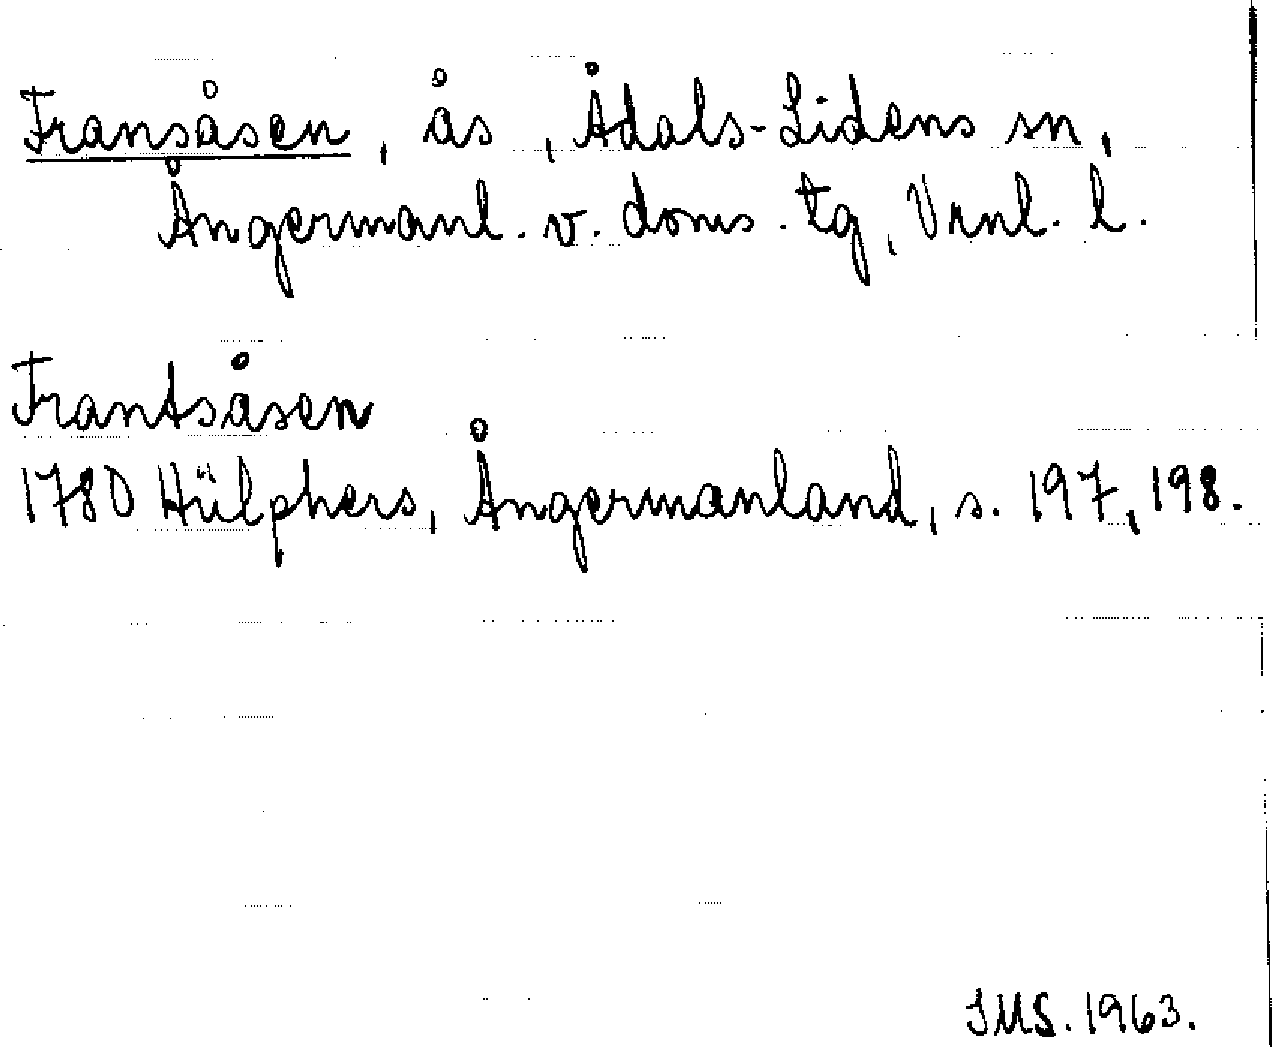 Fransåsen, ås, Ådals-Lidens sn,
Ångermanl. v. doms. tg, Vrnl. l.
Frantsåsen
1780 Hülphers, Ångermanland, s. 197, 198.
IMS. 1963.